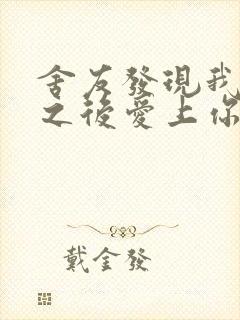 舍友發現我
之後愛上你
戴金發